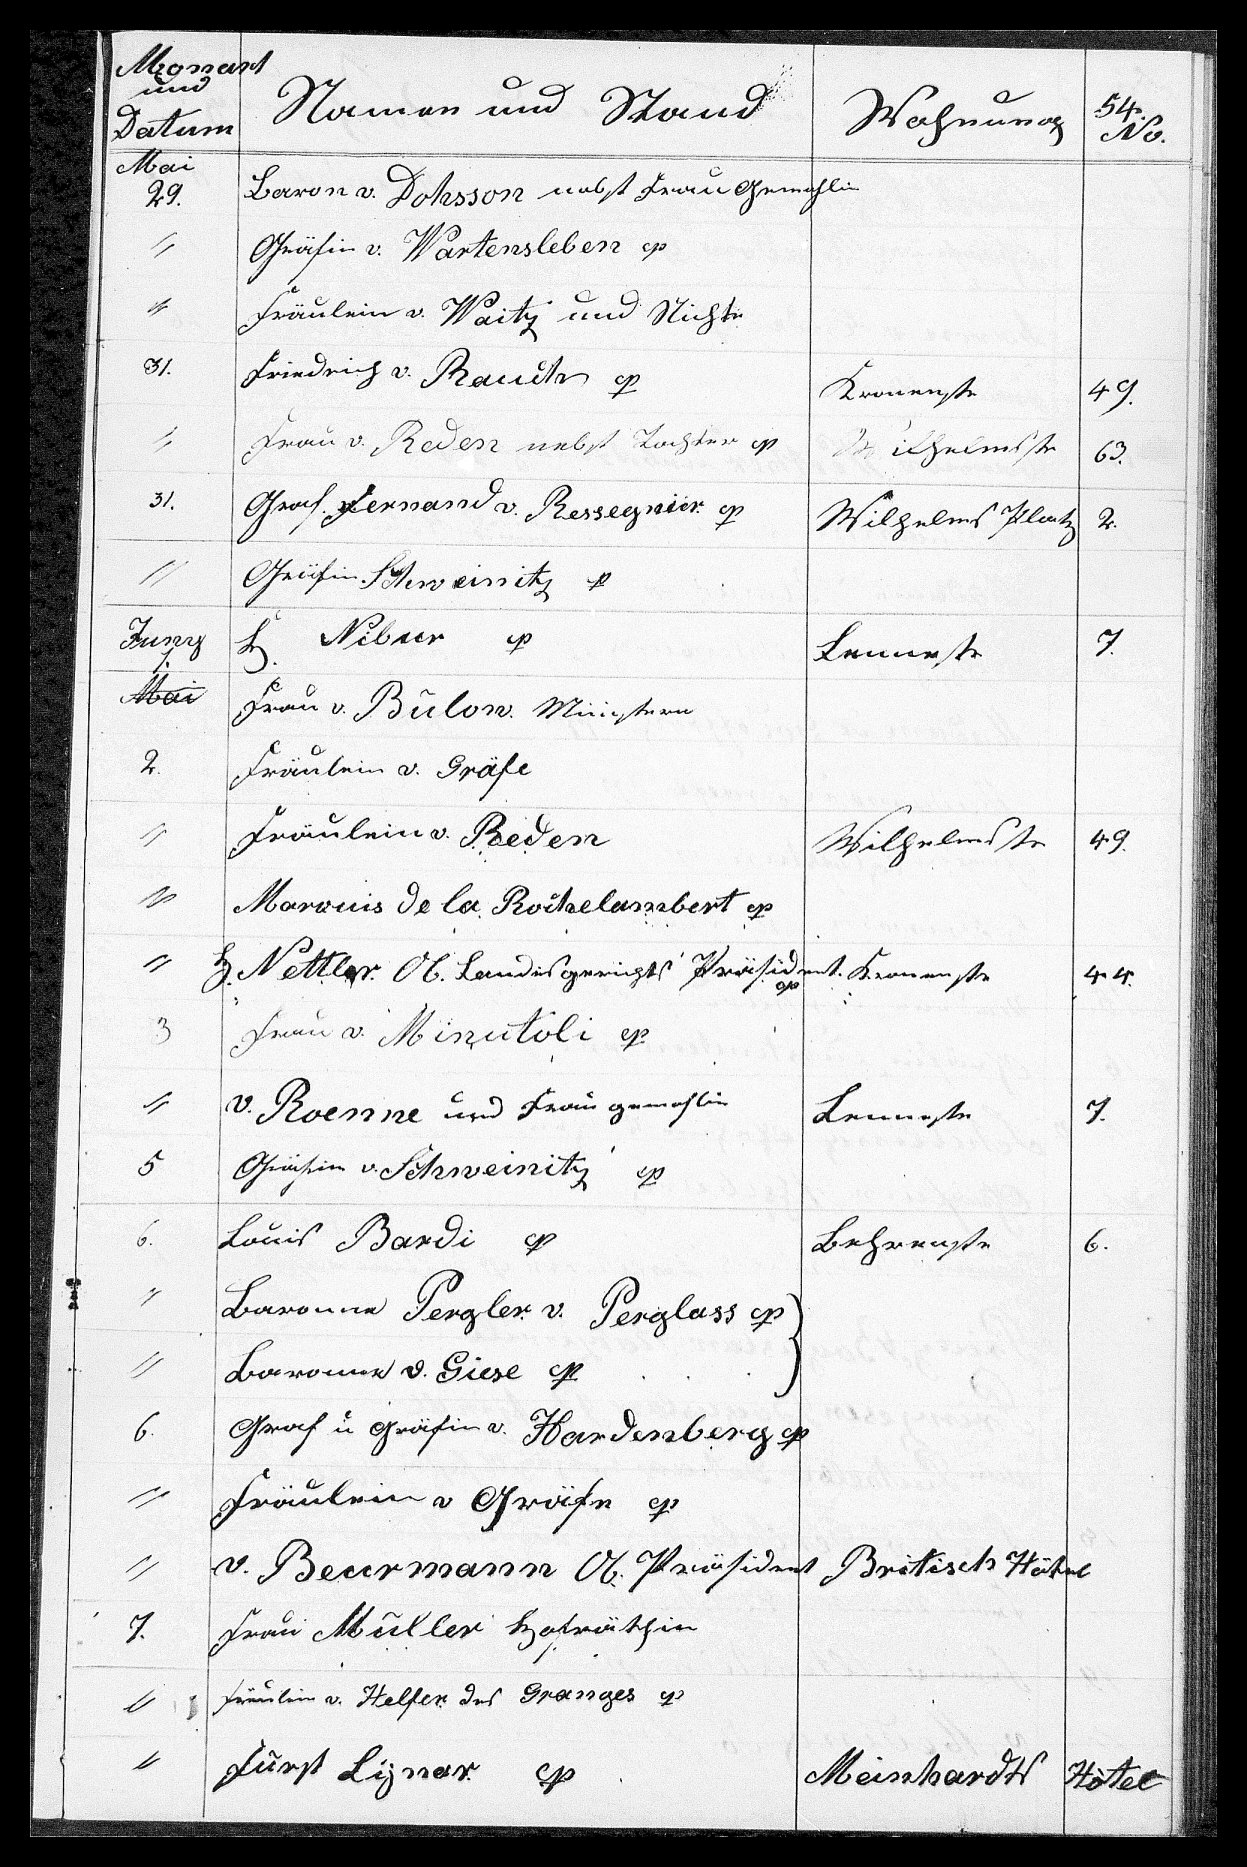 Monart und Datum Namen und Stand Wohnung 54. No.
Mai 29. Baron v. Dohsson nebst Frau Gemahlin
" Gräfin v. Wartensleben cp
" Fräulein v. Waitz und Nichte
31. Friedrich v. Rauch cp Kronenstr 49.
" Frau v. Reden nebst Tochter cp Wilhelmsstr 63.
31. Graf. Fernand v. Ressegnier cp Wilhelms Platz 2.
" Gräfin Schweinitz cp
Juny 1. H. Nibur cp Lennestr 7.
Mai Frau v. Bülow. Ministern
2. Fräulein v. Gräfe
" Fräulein v. Reden Wilhelmsstr 49.
" Marquis de la Rochelambert cp
" H. Nettler Ob. Landesgerichts Präsident. cp Kronenstr 44.
3 Frau v. Minutoli cp
" v. Roenne und Frau gemahlin Lennestr 7.
5 Gräfin v. Schweinitz cp
6. Louis Bardi cp Behrenstr 6.
" Baronne Pergler v. Perglass cp
" Baronne v. Giese cp
6. Graf u Gräfin v. Hardenberg cp
" Fräulein v Gräfe cp
" v. Beurmann Ob. Präsident Britisch Hôtel
7. Frau Müller Hofräthin
" Fräulein v. Helfer des Granges cp
" Fürst Lynar cp Meinhardts Hôtel